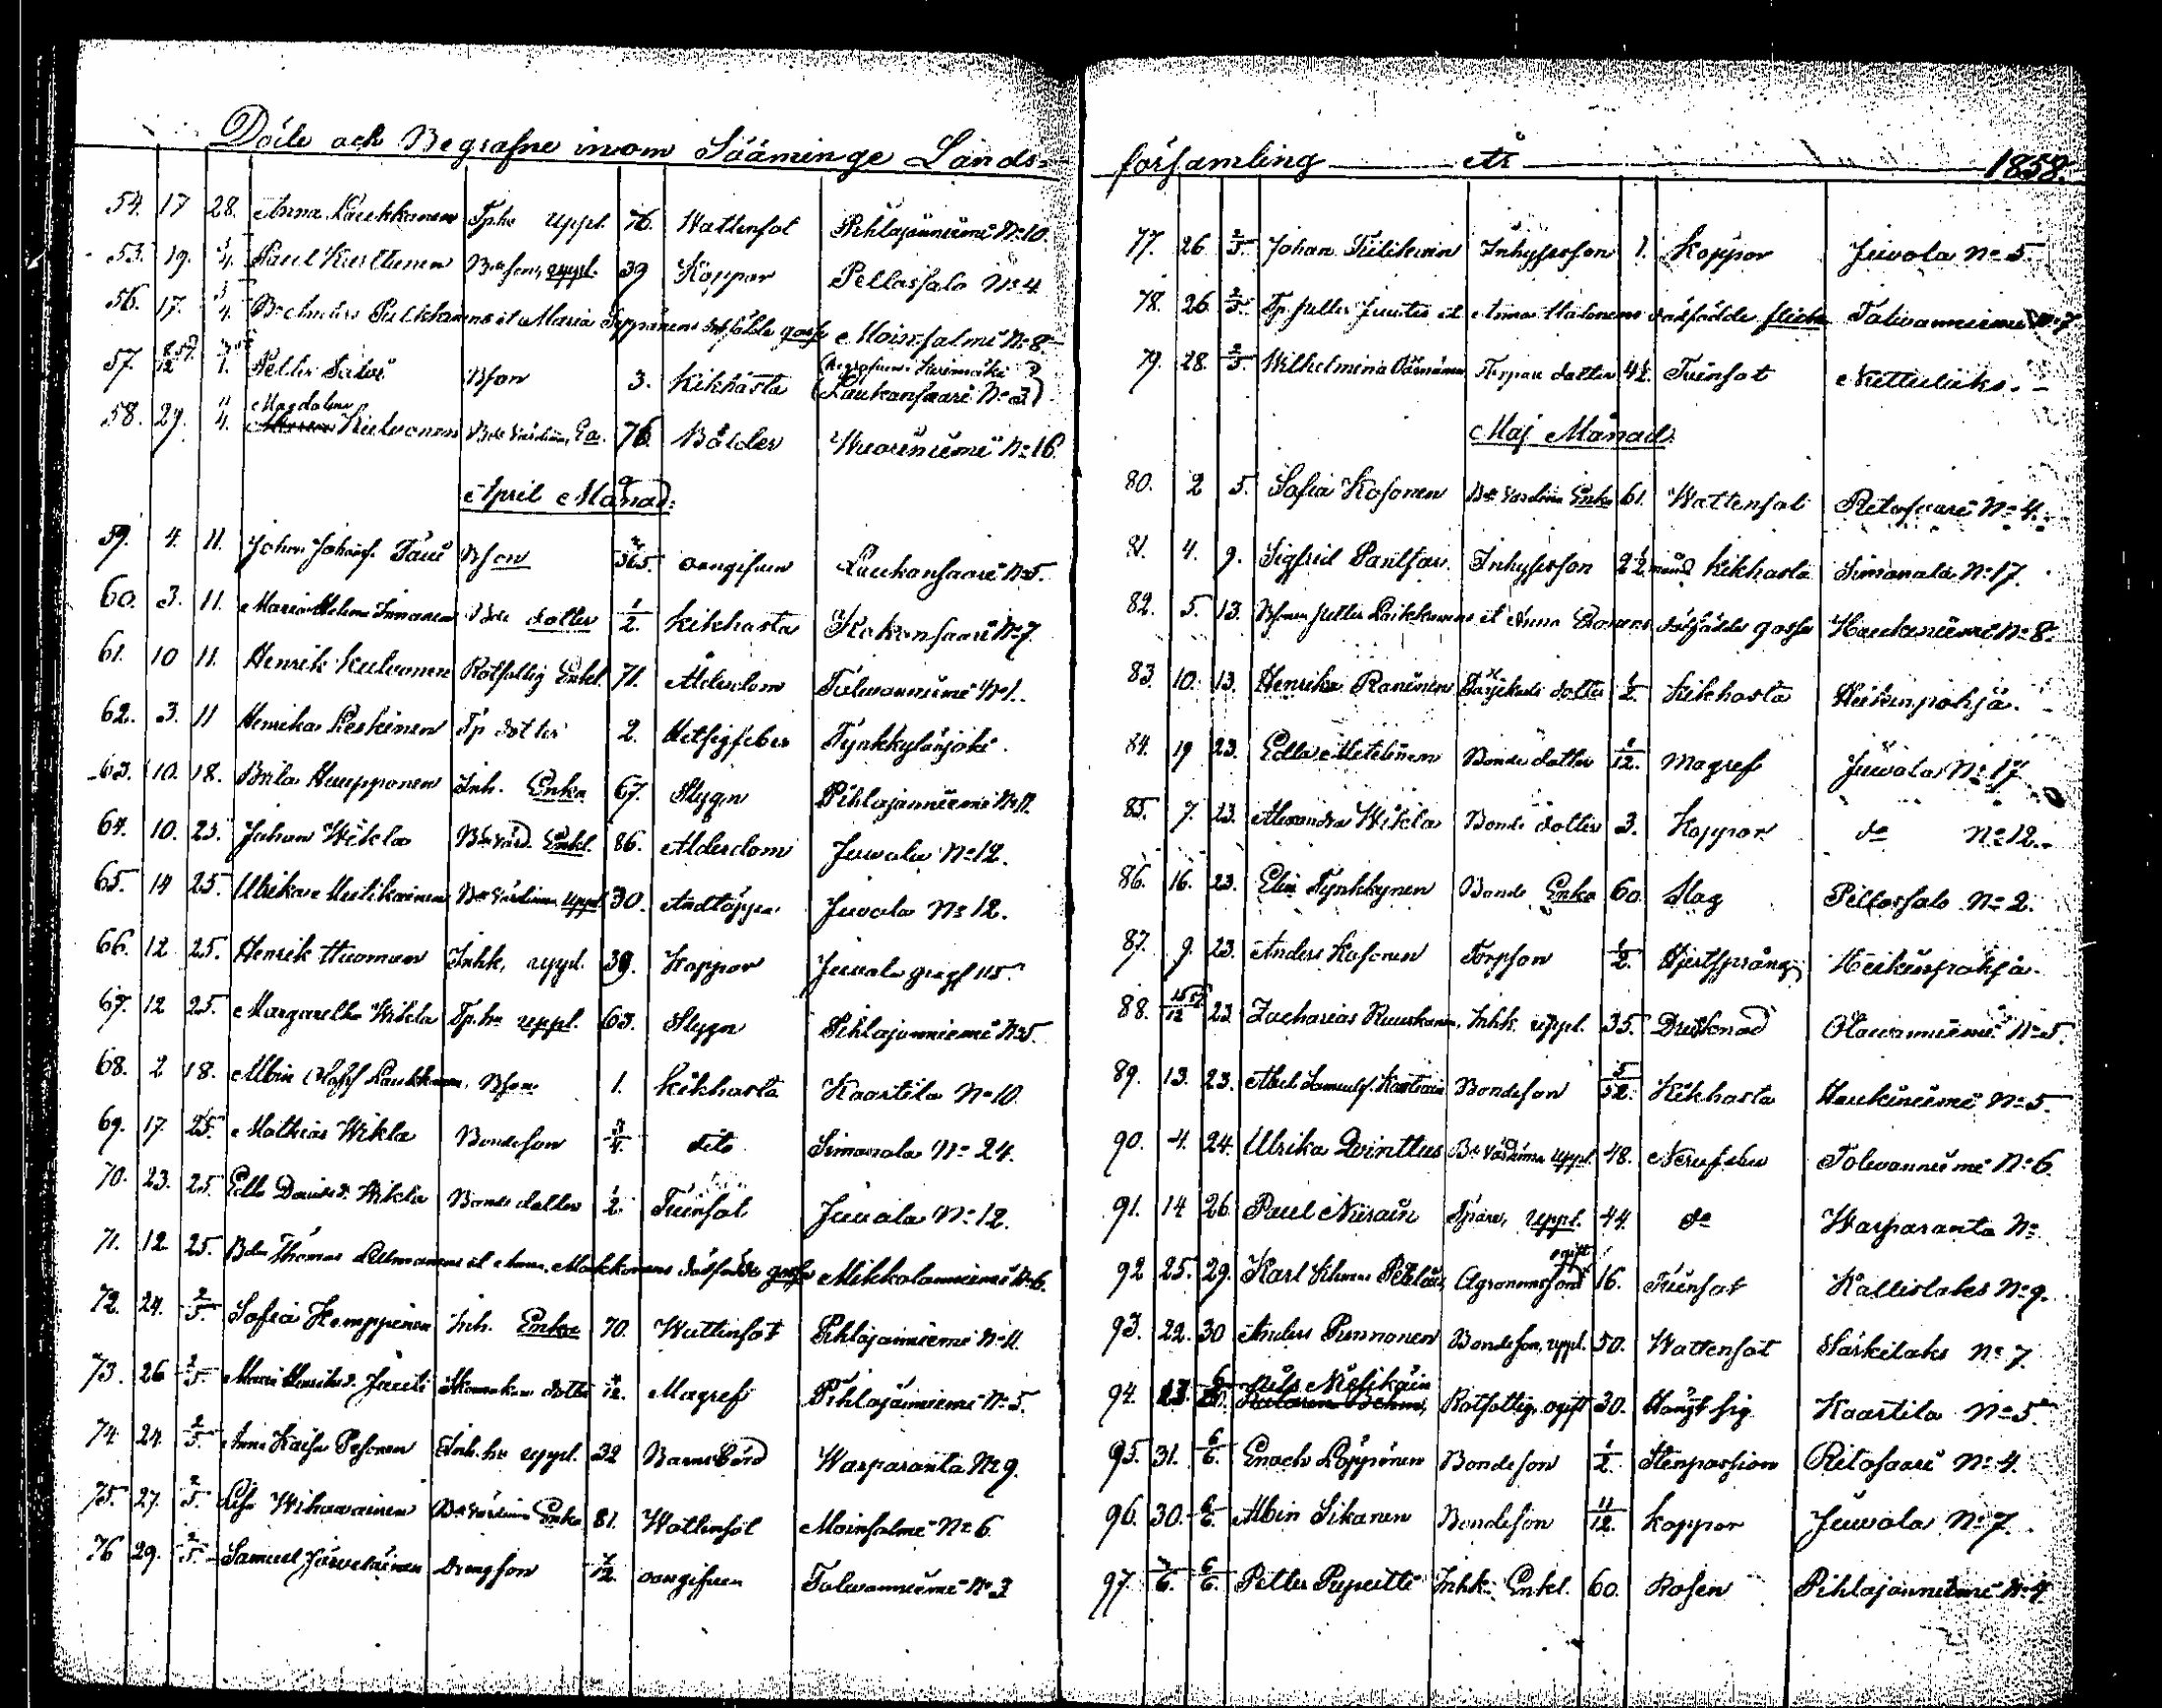 Döde och Begrafne inom Sääminge Lands=
54. 17 28. Anna Laukkanen Tp.hu uppl. 76. Wattensot Pihlajanniemi No 10.
53. 19. 5/4. Paul Kurttunen Bdeson, uppl. 39 Koppor Pellossalo No 4
56. 17. 5/4. Pulkkinens et Maria Seppänens dödfödde gosse Moinsalmi No 8.
57. 12 1. Petter Salvi Bson 3. Kikhosta (Begrafven i Kerimäki) (Laukansaari No 3)
58. 29. 11/4. Magdalena Kulvonen Bde värdinna, Ea. 76. Bölder Wuoriniemi No 16.
April Månad:
59. 4. 11. Johan Johansf. Bson /365. oangifven Laukansaari No 5.
60. 3. 11. Maria Helena Immonen Bde dotter 1/2. Kikhosta Kokonsaari No 7.
61. 10 11. Henrik Kulvonen Rotfattig Enkl. 71. Ålderdom Talvanniemi No 1.
62. 3. 11 Henrika Keskinen Tp dotter 2. Hetsigfeber Tynkkylänjoki.
63. 10. 18. Brita Kaupponen Inh. Enka 67. Stygn Pihlajanniemi No 11.
64. 10. 23. Johan Wikla Bde värd. Enkl. 86. Ålderdom Juvola No 12.
65. 14 25. Ulrika Mustikainen Bde värdinna uppl 30. Andtäppa Juvola No 12.
66. 12 25. Henrik Huomanen Inhk. uppl. 39. Koppor Juvola
67. 12 25. Margaretha Wikla Tp.hu uppl. 63. Stygn Pihlajanniemi No 5.
68. 2 18. Albin Olofsf Laukkanen, Bson 1. Kikhosta Kaartila No 10.
69. 17. 25. Mathias Wikla Bondeson 3/4. dito Simanala No 24.
70. 23. 25. Edla Davidsd. Wikla Bonde dotter 1/2. Tvinsot Juvola No 12.
71. 12 25. Bden Thomas et Anna Makkonens dödfödde gosse Mikkolanniemi No 6.
72. 24. 2/5. Sofia Kemppinen Inh. Enka 70. Wattensot Pihlajanniemi No 11.
73. 26 2/5. Maria Henriksd. Juuti dotter /12. Magref Pihlajanniemi No 5.
74. 24. 2/5. Anna Kaisa Pesonen Inh.hu uppl. 32 Barnsbörd Warparanta No 9.
75. 27. 2/5. Lisa Wihavainen Bde värdinna Enka 81. Wattensot Moinsalmi No 6.
76 29. 2/5. Samuel Järveläinen Drengson /12. oangifven Talvanniemi No 3
församling År 1858.
77. 26 2/5. Johan Tiilikain Inhysesson 1. Koppor Juvola No 5.
78. 26 2/5. Tp. Petter Juutis et Anna dödfödde flicka Talvanniemi No 7
79. 28. 2/5. Wilhelmina Torpare dotter 4 1/2. Tvinsot Nuttulaks.
Maj Månad:
80. 2 5. Sofia Kosonen Bde värdinna Enka 61. Wattensot Ritosaari No 4.
81. 4. 9. Sigfrid Panttar Inhysesson 2 1/2 månad Kikhosta Simanala No 17.
82. 5. 13. Bson Petter Laukkanens et Anna dödfödde gosse Haukiniemi No 8.
83. 10. 13. Henrika Raninen dotter 1/2. Kikhosta Heikinpohja.
84. 19 23. Edla Metelinen Bonde dotter 1/12. Magref Juvola No 17.
85. 7. 23. Alexandra Wikla Bonde dotter 3. Koppor do No 12.
86. 16. 23. Elin Tynkkynen Bonde Enka 60. Slag Pellossalo No 2.
87. 9. 23. Anders Kosonen Torpson 1/2. Hjertsprång Heikinpohja.
88. 15/12 57 23. Zacharias Ruuskanen, Inhk. uppl. 35. Drunknad Olavanniemi No 5.
89. 13. 23. Abel Samuelsf. Bondeson 5/52. Kikhosta Haukiniemi No 5.
90. 4. 24. Ulrika Qvinttus Bde värdinna uppl 48. Nervfeber Talvanniemi No 6.
91. 14 26 Paul Niirain Tpare, uppl. 44. do Warparanta No
92 25. 29. Karl Agronomson ogift 16. Tvinsot Kallislaks No 9.
93. 22. 30 Anders Punnonen Bondeson, uppl. 50. Wattensot Särkilaks No 7
94. 23. Nils Rotfattig, ogift 30. Hängt sig Kaartila No 5.
95. 31. 6/6. Enoch Löppönen Bondeson 1/2. Stenpassion Ritosaari No 4.
96. 30. 6/6. Albin Sikanen Bondeson 11/12. Koppor Juvola No 7.
97. /6. 6/6. Petter Pupuitti Inhk. Enkl. 60. Rosen Pihlajanniemi No 4